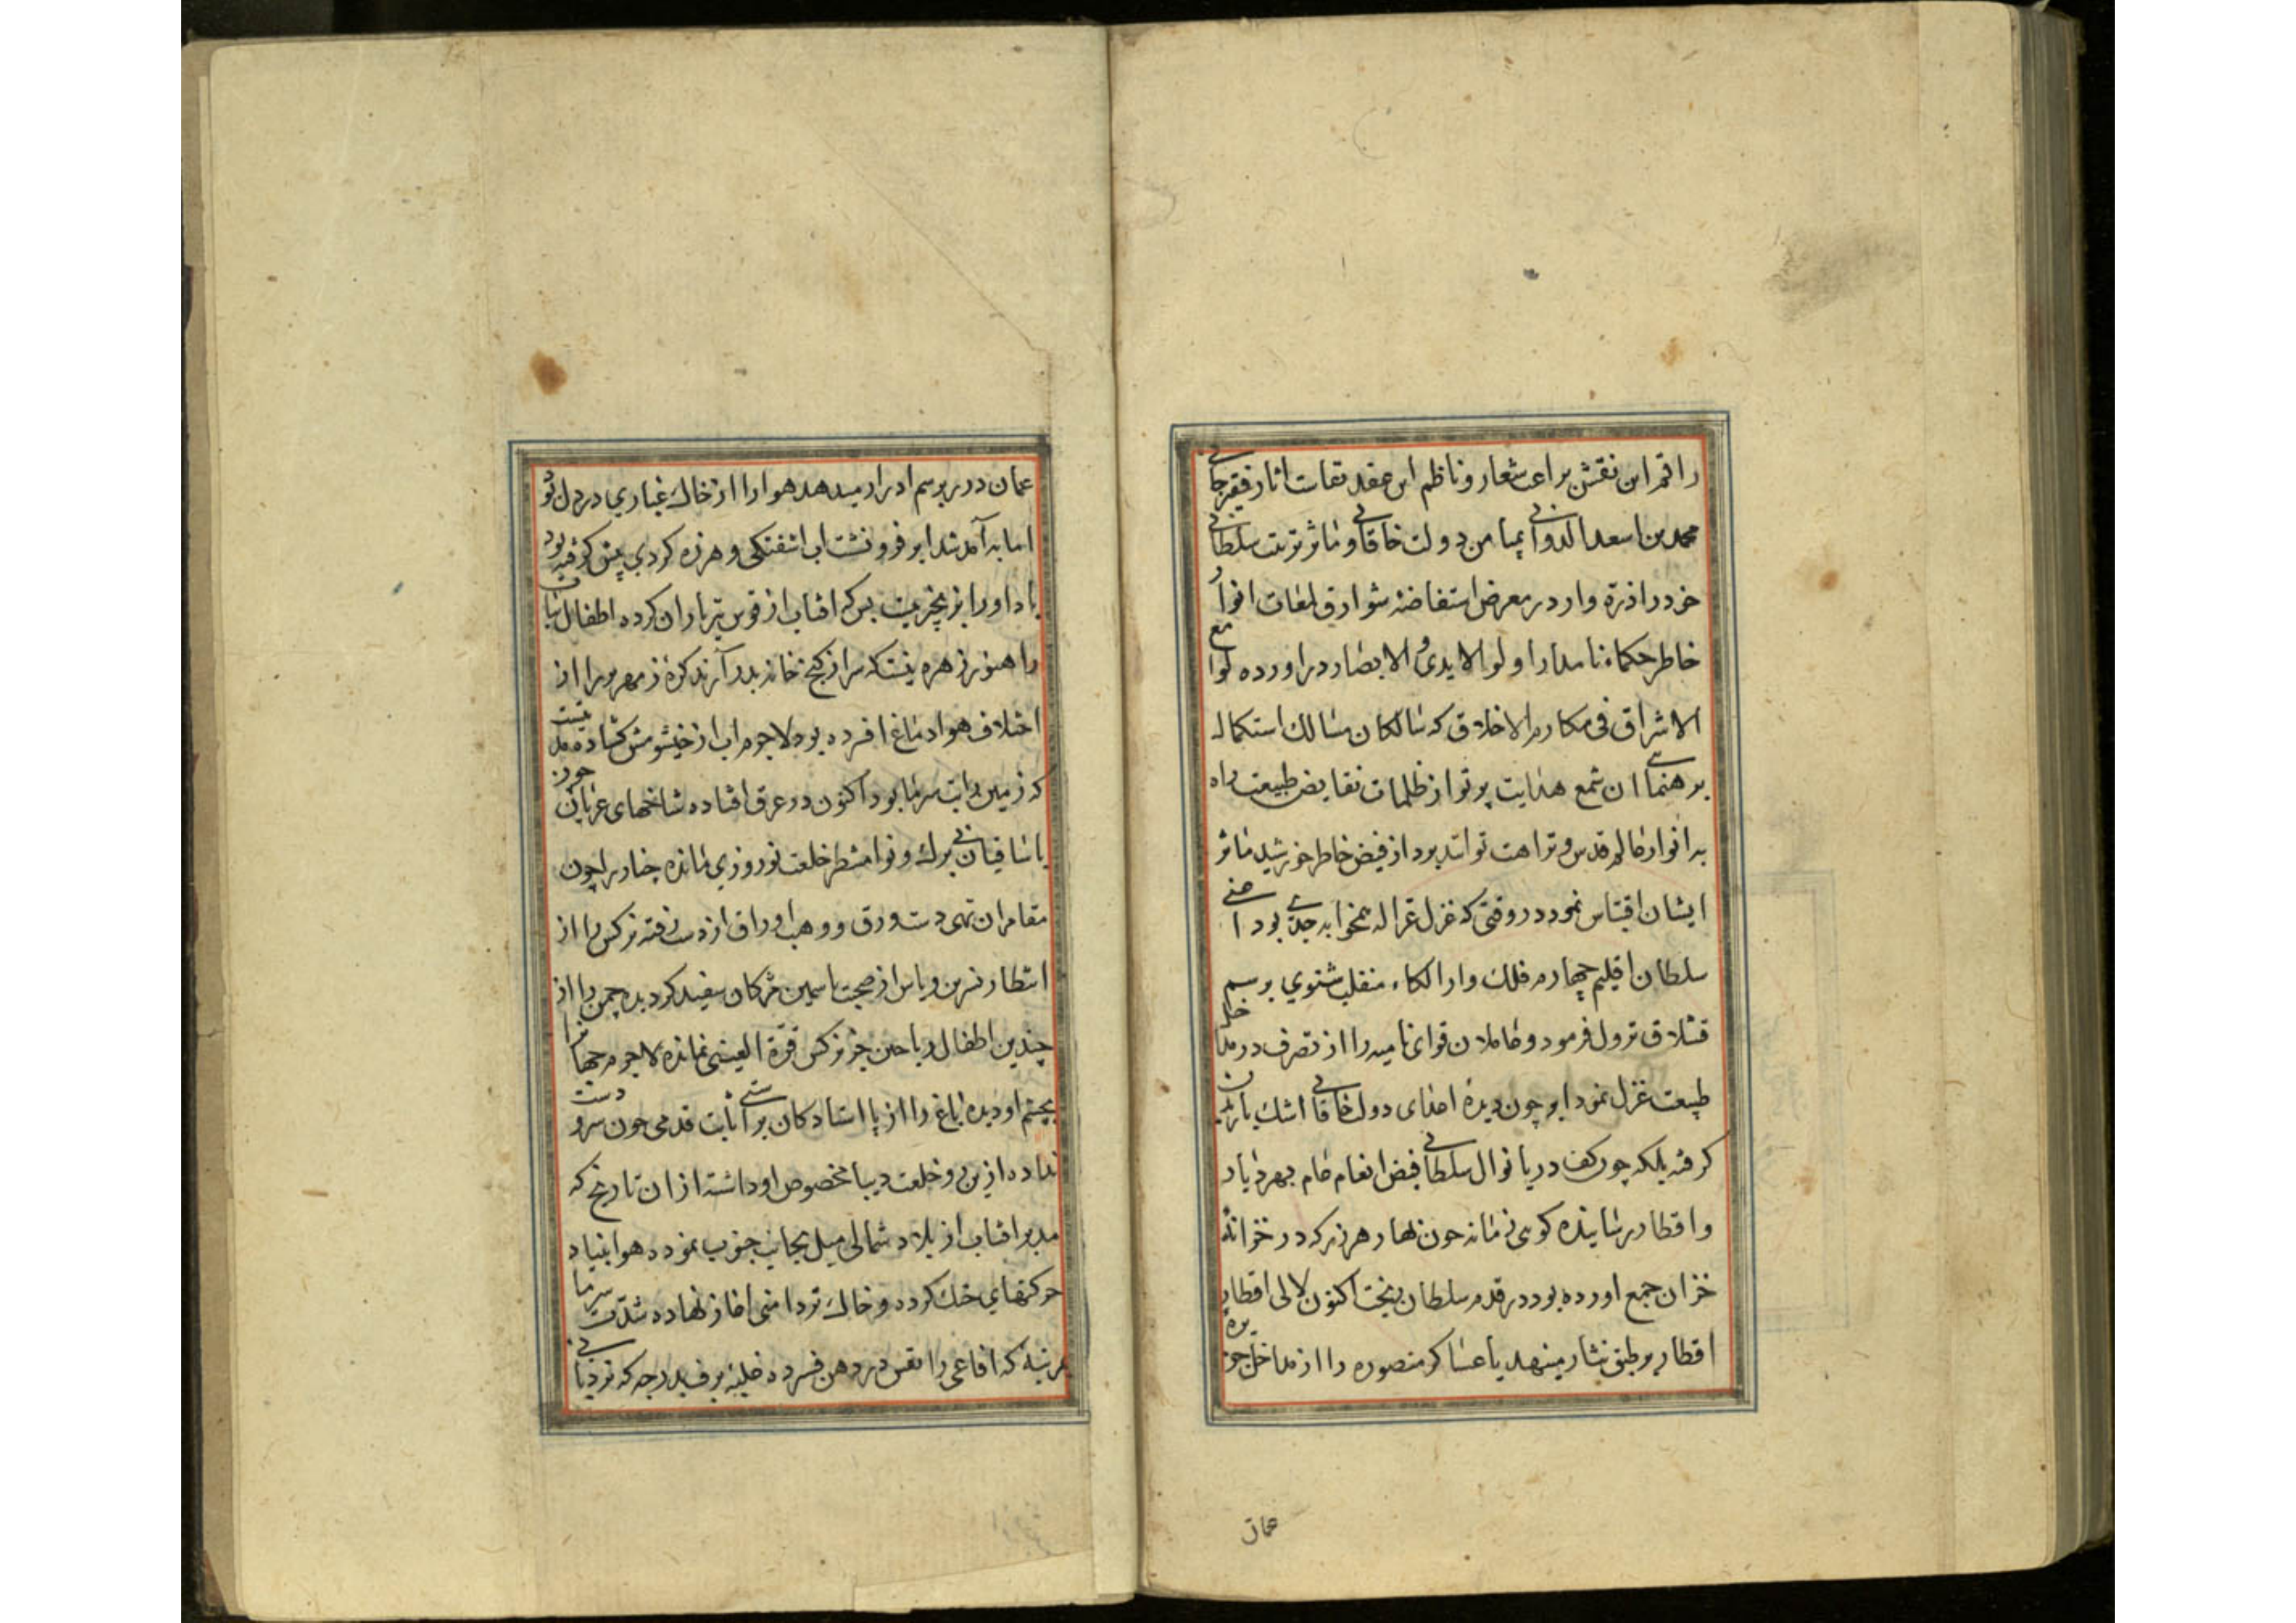 راقم این نقش براعت شعار و ناظم این عقد نقات اثار فقیر جانی
محمد بن اسعد الدوانی بمیامن دولت خاقانی و ماثر تربیت سلطانی
خود را ذره وار در معرض استفاضه شوارق لمعات انوار
خاطر حکماء نامدار اولو الایدی و الابصار در اورده لوامع
الاشراق فی مکارم الاخلاق که سالکان مسالک استکمال
برهنمایی ان شمع هدایت پرتو از ظلمات نقایص طبیعت راه
به انوار عالم قدس و نزاهت توانند برد از فیض خاطر خورشید ماثر
ایشان اقتباس نمود در وقتی که غزل غزاله بمخوابه جدی بود اعنی
سلطان اقلیم چهارم فلک وارالکاء منقلب شتوی برسم
قشلاق نزول فرمود و عاملان قوای نامیه را از تصرف در مداخل
طبیعت عزل نمود ابر چون دیده اعدای دولت خاقانی اشک باریدن
کرفته بلکه چون کف دریا نوال سلطانی فیض انعام عام بهر دیار
و اقطار رسانیده کوهی نمانه چون نهار هر زر که در خزانه
خزان جمع اورده بود در قدم سلطان ریخت اکنون لالی اقطار
اقطار بر طبق نثار مینهد یا عساکر منصوره را از مداخل جزیره
عمان
عمان در بر برسم ادرار میدهد هوا را از خاک غباری در دل بود
اما به آمد شد ابر فرو نشت اب اشفتکی و هرزه کردی پیش کرفته بود
باد او را بزنجیر بست بس که افتاب از قوس تیر باران کرده اطفال نبات
را هنوز زهره نیست که سر از کنج خانه بدر آرند کره زمهریر را از
اختلاف هوا دماغ افسرده بود لاجرم اب از خیشومش کشاده مدتیست
که زمین را تب سرما بود اکنون در عرق افتاده شاخهای عریان چون
با ساقیان بی برک و نوا منتظر خلعت نوروزی مانده چنار را چون
مقامران تهی دست ورق و وهب اوراق از دست رفته نرکس را از
انتظار نسرین و یاس از صحبت یاسمین مژکان سفید کردیده چمن را از
چندین اطفال ریاحین جز نرکس قرة العینی نمانده لاجرم جهانرا
بچشم او دیده باغ را از پا استادکان بر اثابت قدمی چون سرو دست
نداده ازین رو خلعت دیبا مخصوص او داشته از ان تاریخ که
مدبر افتاب از بلاد شمالی میل بجانب جنوب نموده هوا بنیاد
حرکتهای خنک کرده و خاک تر دامنی اغاز نهاده شدت سرما
بمرتبهٔ که افاعی را نفس در دهن فسرده غلبه برف بدرجه که نردبانی